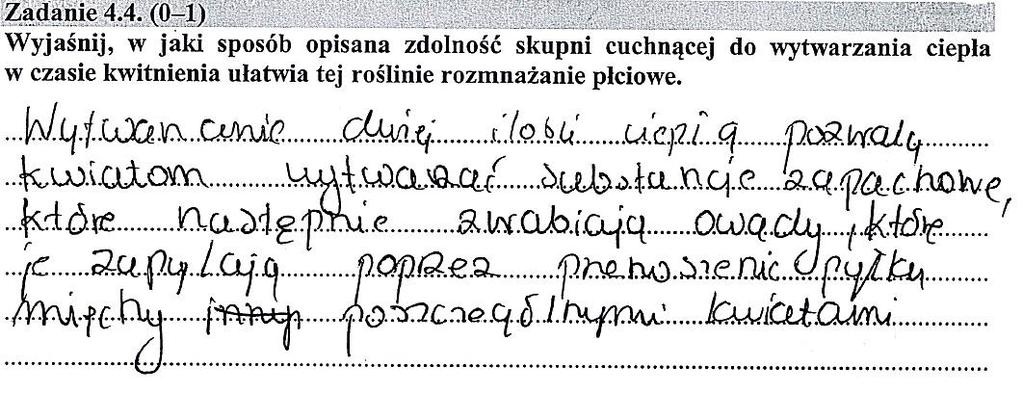 Zadanie 4.4. (0–1)
Wyjaśnij, w jaki sposób opisana zdolność skupni cuchnącej do wytwarzania ciepła
w czasie kwitnienia ułatwia tej roślinie rozmnażanie płciowe.
Wytwarzanie dużej ilości ciepła pozwala
kwiatom wytwarzać substancje zapachowe,
które następnie zwabiają owady, które
je zapylają poprzez przenoszenie pyłku
między inny poszczególnymi kwiatami